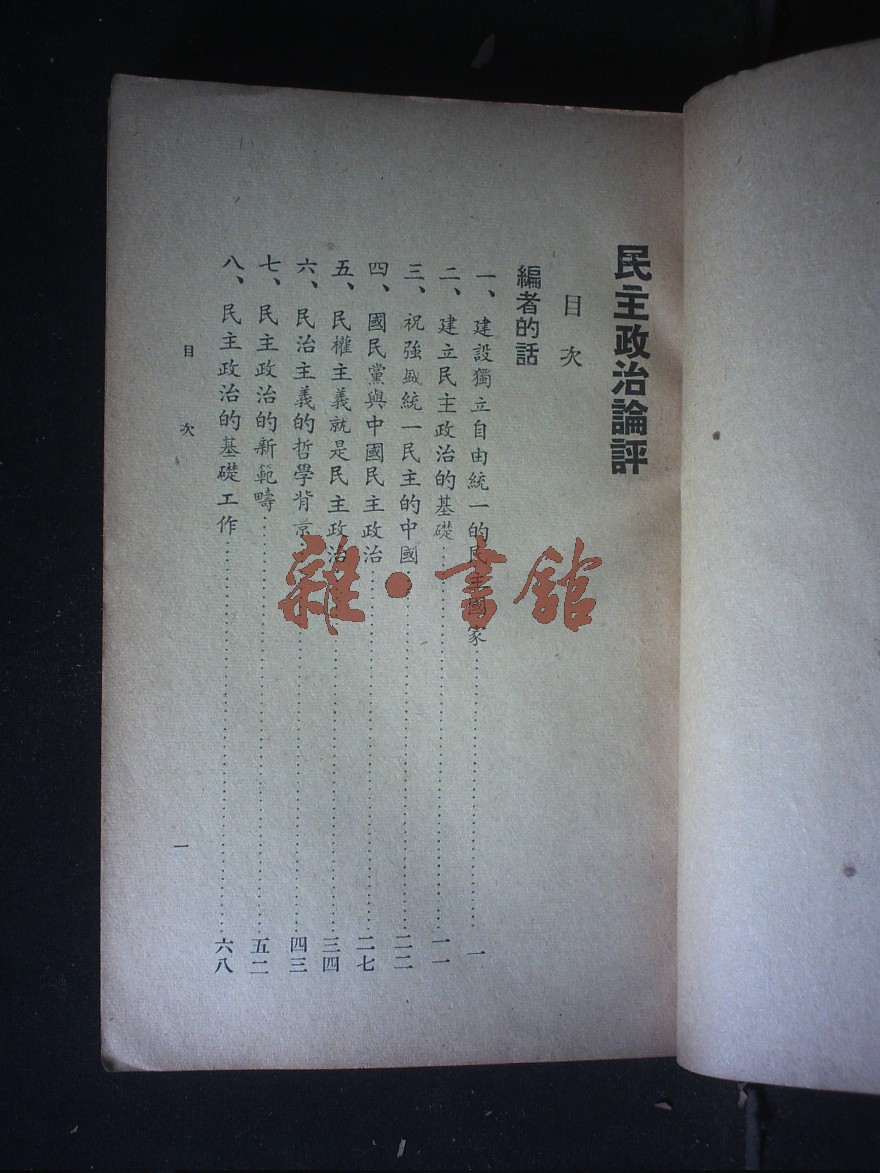 民主政治論評
目次
編者的話
一、建設獨立自由統一的民主國家……一
二、建立民主政治的基礎……一一
三、祝強盛統一民主的中國……二二
四、國民黨與中國民主政治……二七
五、民權主義就是民主政治……三四
六、民治主義的哲學背京……四三
七、民主政治的新範疇……五二
八、民主政治的基礎工作……六八
目次
一
雜·書館